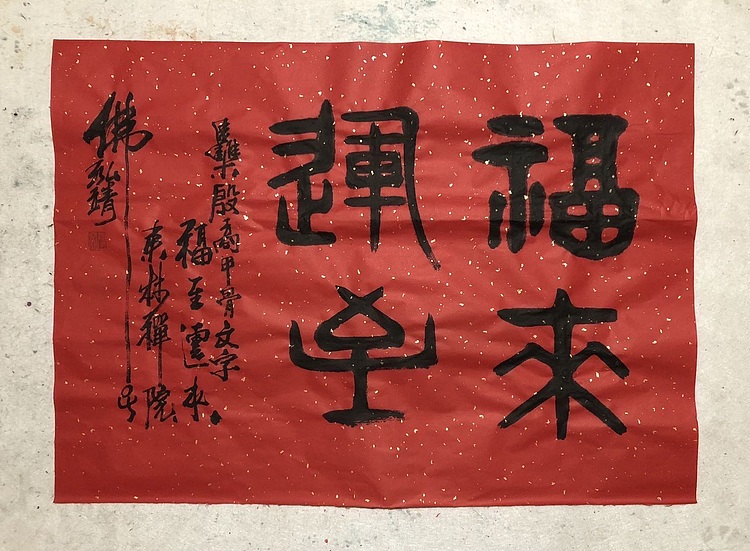 福来
運至
集殷商甲骨文字
福至運来
東林禪院
佛
弘晴